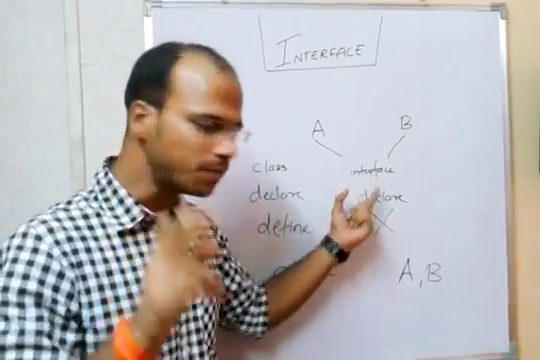 INTERFACE
A B
class interface
declare
define X
A, B